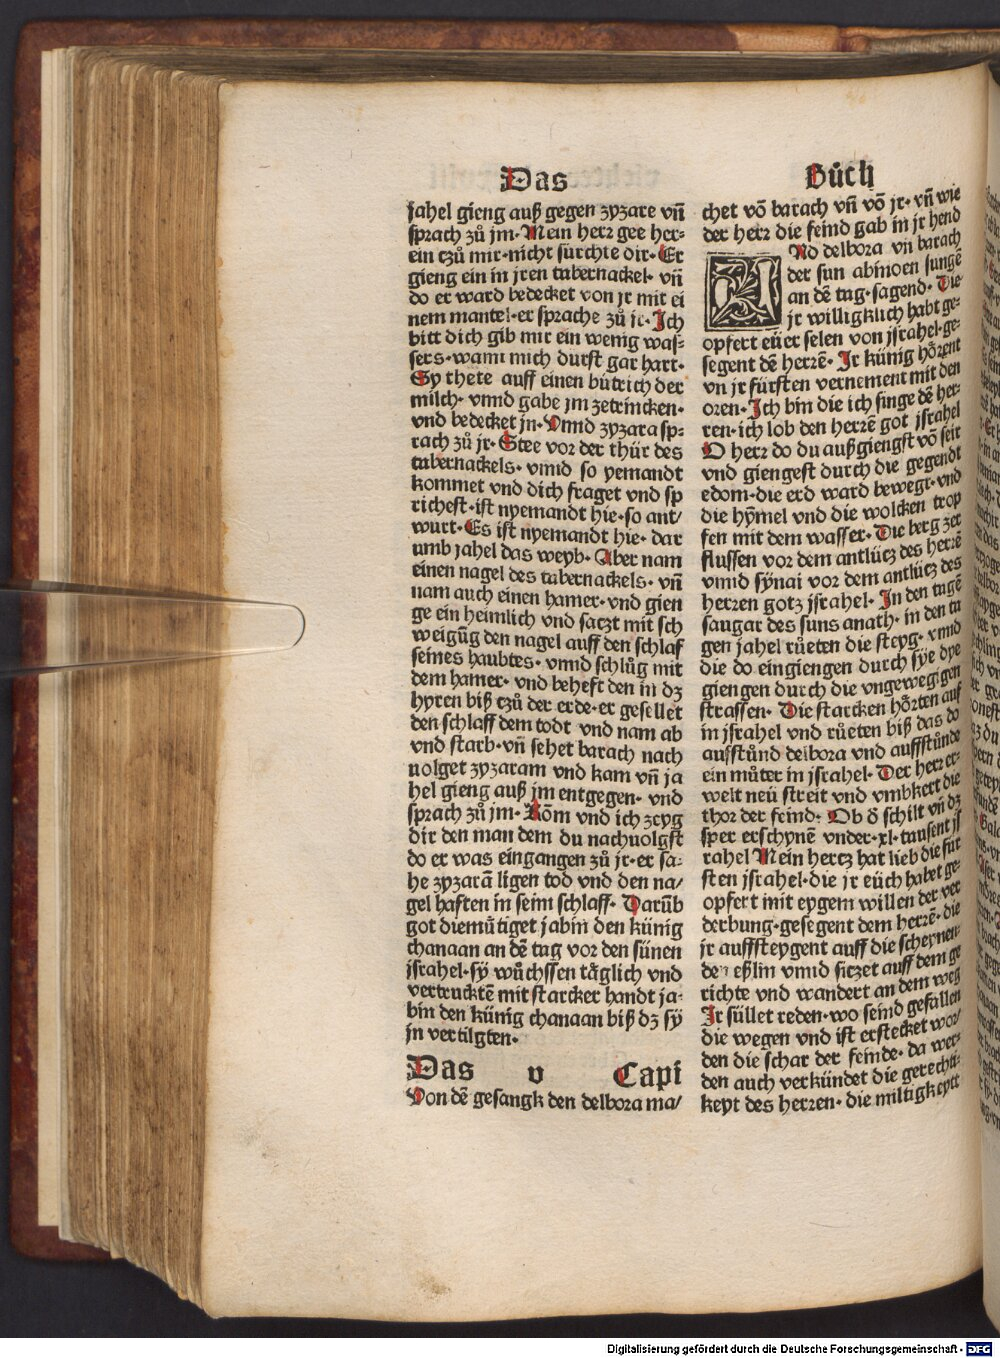 Das
Bůch
jahel gieng auß gegen zyzare vñ
sprach zů jm· Mein herr gee her⸗
ein tzů mir·nicht fürchte dir· Er
gieng ein in jren tabernackel· vñ
do er ward bedecket von jr mit ei
nem mantel·er sprache zů jr· Ich
bitt dich gib mir ein wenig was⸗
sers·wann mich durst gar hart·
Sy thete auff einen bütrich der
milch· vnnd gabe jm zetrincken·
vnd bedecket jn· Vnnd zyzara sp⸗
rach zů jr· Stee vor der thür des
tabernackels· vnnd so yemandt
kommet vnd dich fraget vnd sp
richest·ist nyemandt hie·so ant/
wurt· Es ist nyemandt hie· dar
umb jahel das weyb· Aber nam
einen nagel des tabernackels· vñ
nam auch einen hamer·vnd gien
ge ein heimlich vnd satzt mit sch
weigūg den nagel auff den schlaf
seines haubtes· vnnd schlůg mit
dem hamer· vnd beheft den in dz
hyren biß tzů der erde·er gesellet
den schlaff dem todt vnd nam ab
vnd starb·vñ sehet barach nach
uolget zyzaram vnd kam vñ ja
hel gieng auß jm entgegen· vnd
sprach zů jm· Kōm vnd ich zeyg
dir den man dem du nachuolgst
do er was eingangen zů jr·er sa⸗
he zyzarā ligen tod vnd den na/
gel haften in seim schlaff· Darūb
got diemütiget jabin den künig
chanaan an dē tag vor den sünen
jsrahel·sÿ wůchssen täglich vnd
vertrucktē mit starcker handt ja⸗
bin den künig chanaan biß dz sÿ
jn vertilgten·
Das v Capi
Von dē gesangk den delbora ma/
chet võ barach vñ võ jr·vñ wie
der herr die feind gab in jr hend
Nd delbora vñ barach
der sun abinoen sungē
an dē tag·sagend· Die
jr williglich habt ge⸗
opfert eüer selen von jsrahel·ge⸗
segent dē herrē· Ir künig hörent
vn jr fürsten vernement mit den
oren· Ich bin die ich singe dē her⸗
ren·ich lob den herrē got jsrahel
O herr do du außgiengst võ seir
vnd giengest durch die gegendt
edom·die erd ward bewegt·vnd
die hÿmel vnd die wolcken trop
fen mit dem wasser· Die berg zer
flussen vor dem antlütz des herrē
vnnd sÿnai vor dem antlütz des
herren gotz jsrahel· In den tagē
saugar des suns anath· in den ta
gen jahel růeten die steyg· vnnd
die do eingiengen durch sÿe dye
giengen durch die vngewegigen
strassen· Die starcken hörten auf
in jsrahel vnd růeten biß das do
aufstůnd delbora vnd auffstůnde
ein můter in jsrahel· Der herr er⸗
welt neü streit vnd vmbkert die
thor der feind· Ob d̄ schilt vñ dz
sper erschynē vnder·xl·tausent js
rahel Mein hertz hat lieb die für
sten jsrahel·die jr eüch habet ge⸗
opfert mit eygem willen der ver
derbung·gesegent dem herrē·die
jr auffsteygent auff die scheynen⸗
den eßlin vnnd sitzet auff dem ge
richte vnd wandert an dem weg
Ir süllet reden·wo seind gefallen
die wegen vnd ist erstecket wor/
den die schar der feinde· da wer⸗
den auch verkündet die gerechti⸗
keyt des herren· die miltigkeytt
Digitalisierung gefördert durch die Deutsche Forschungsgemeinschaft - DFG